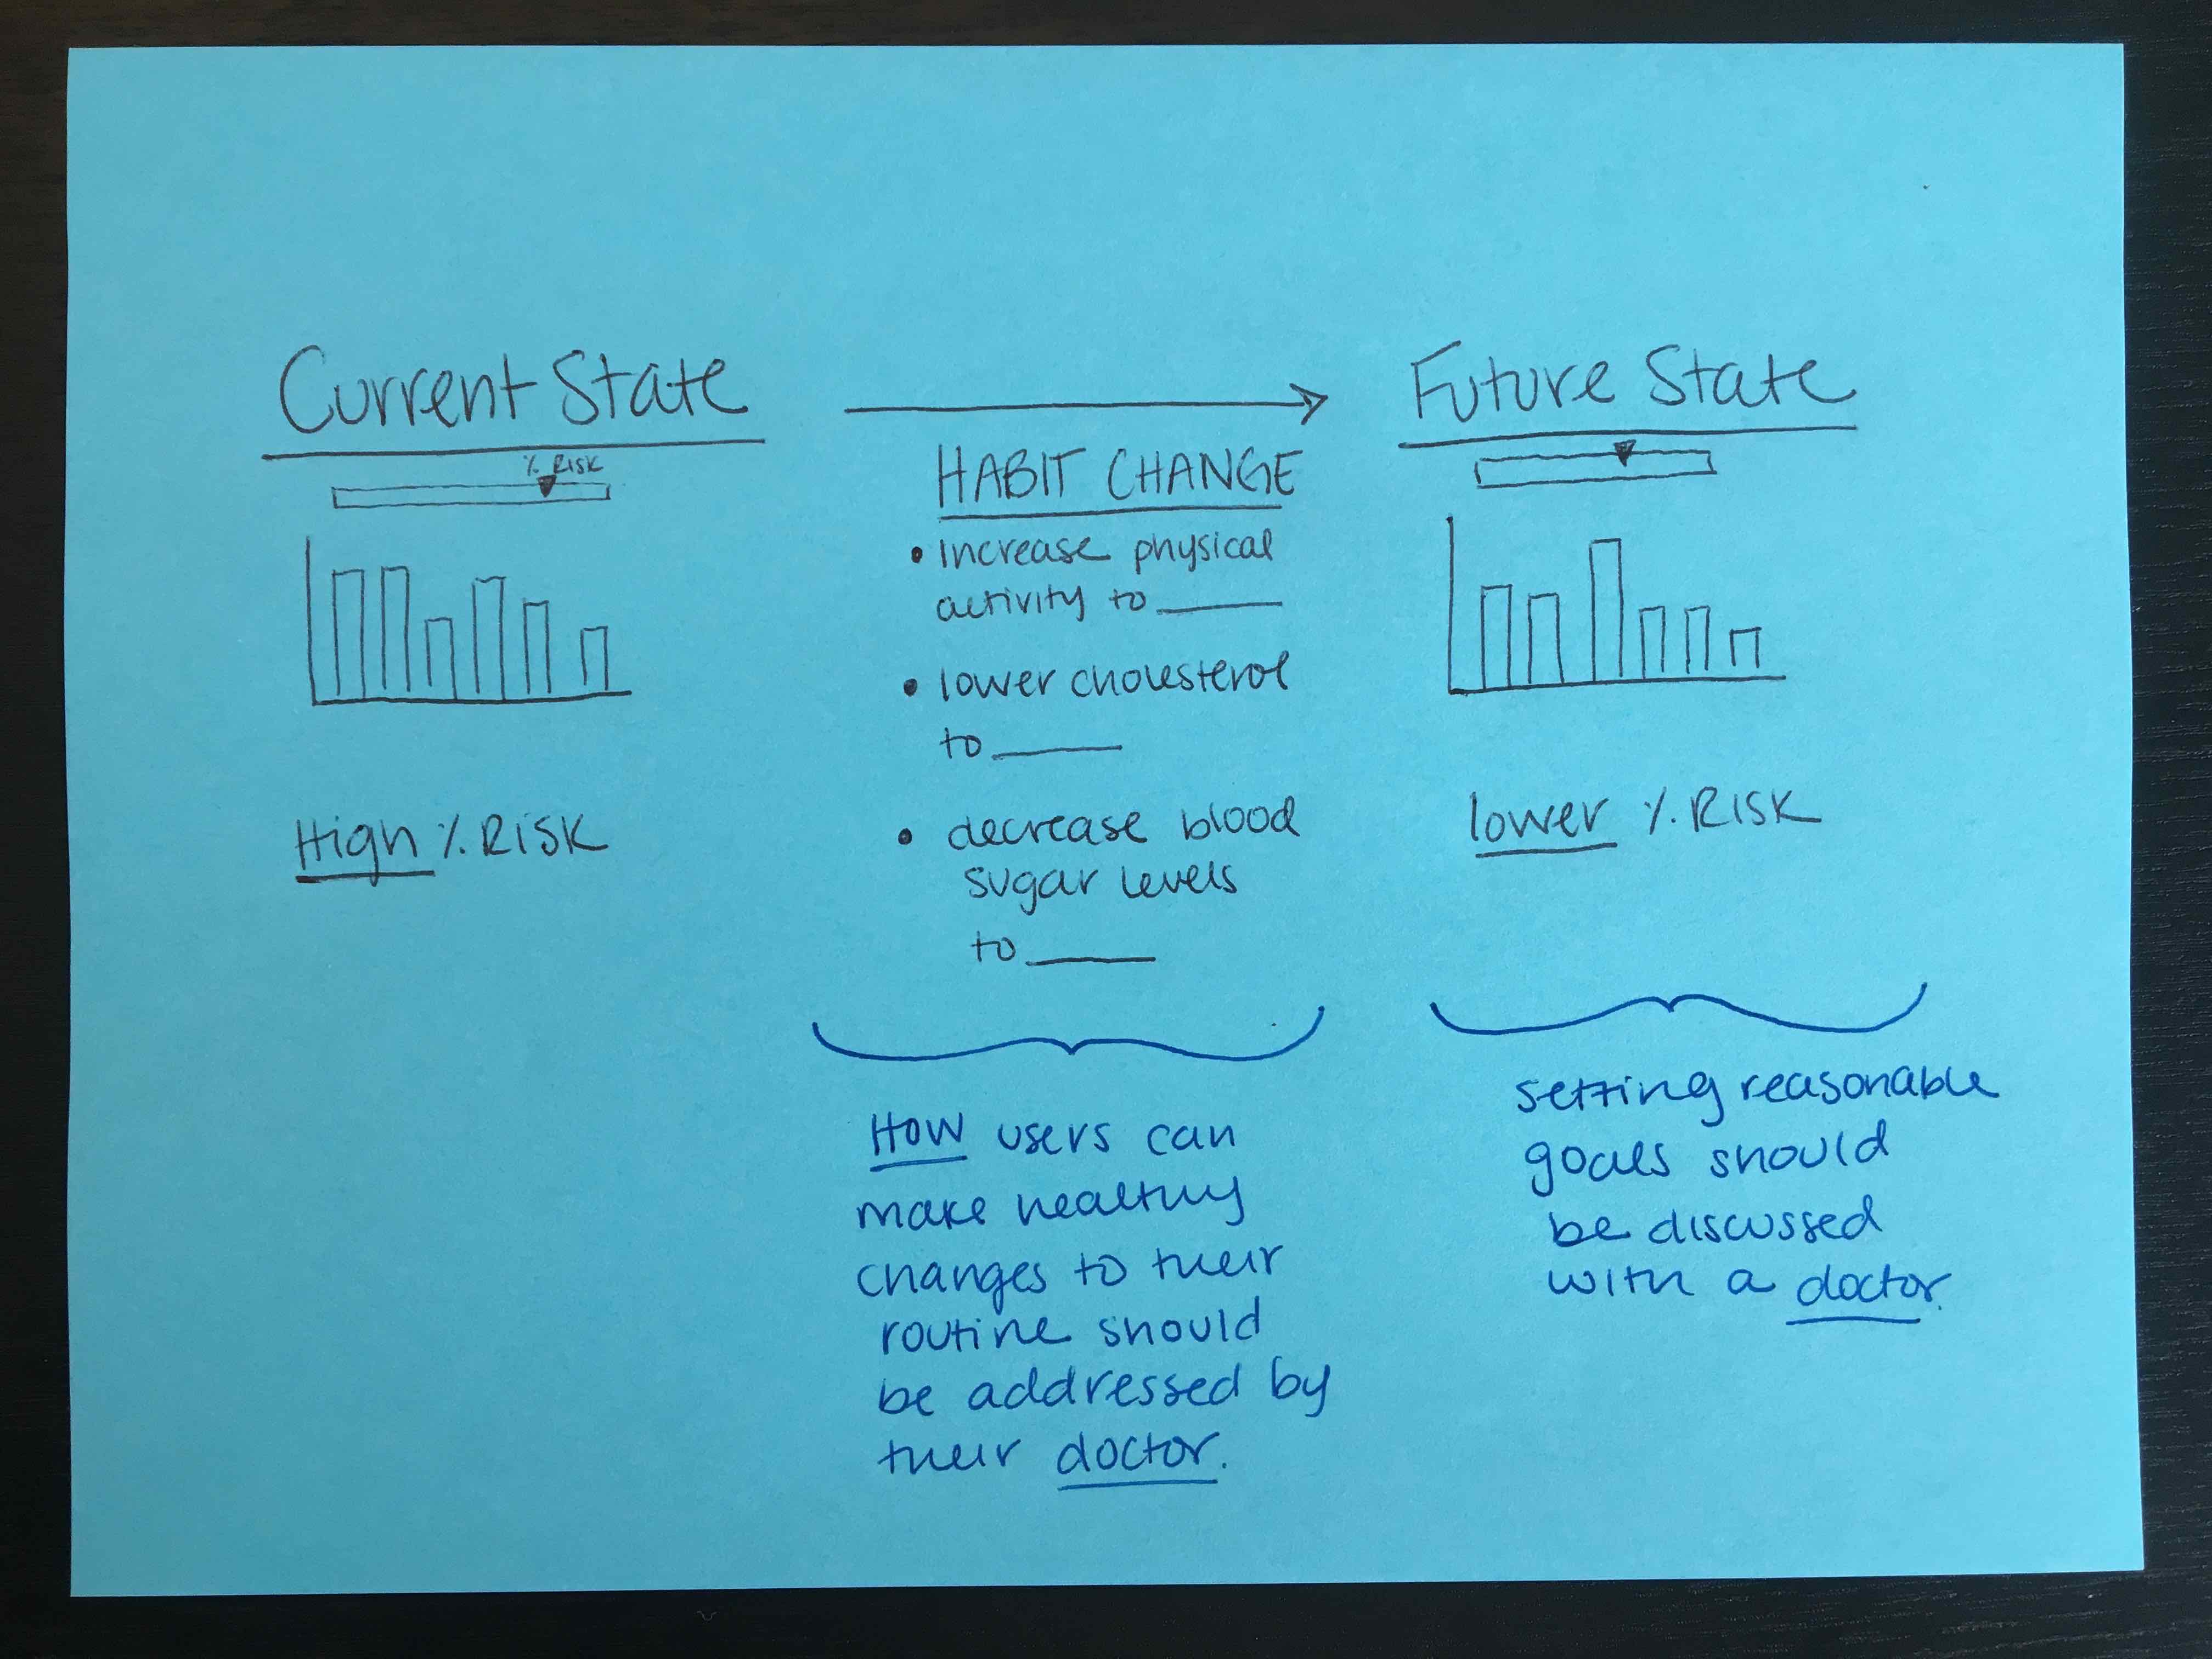 Current State
% RISK
High % RISK
HABIT CHANGE
• increase physical
activity to ______
• lower cholesterol
to ______
• decrease blood
sugar levels
to ______
HOW users can
make healthy
changes to their
routine should
be addressed by
their doctor.
Future State
lower % RISK
setting reasonable
goals should
be discussed
with a doctor.